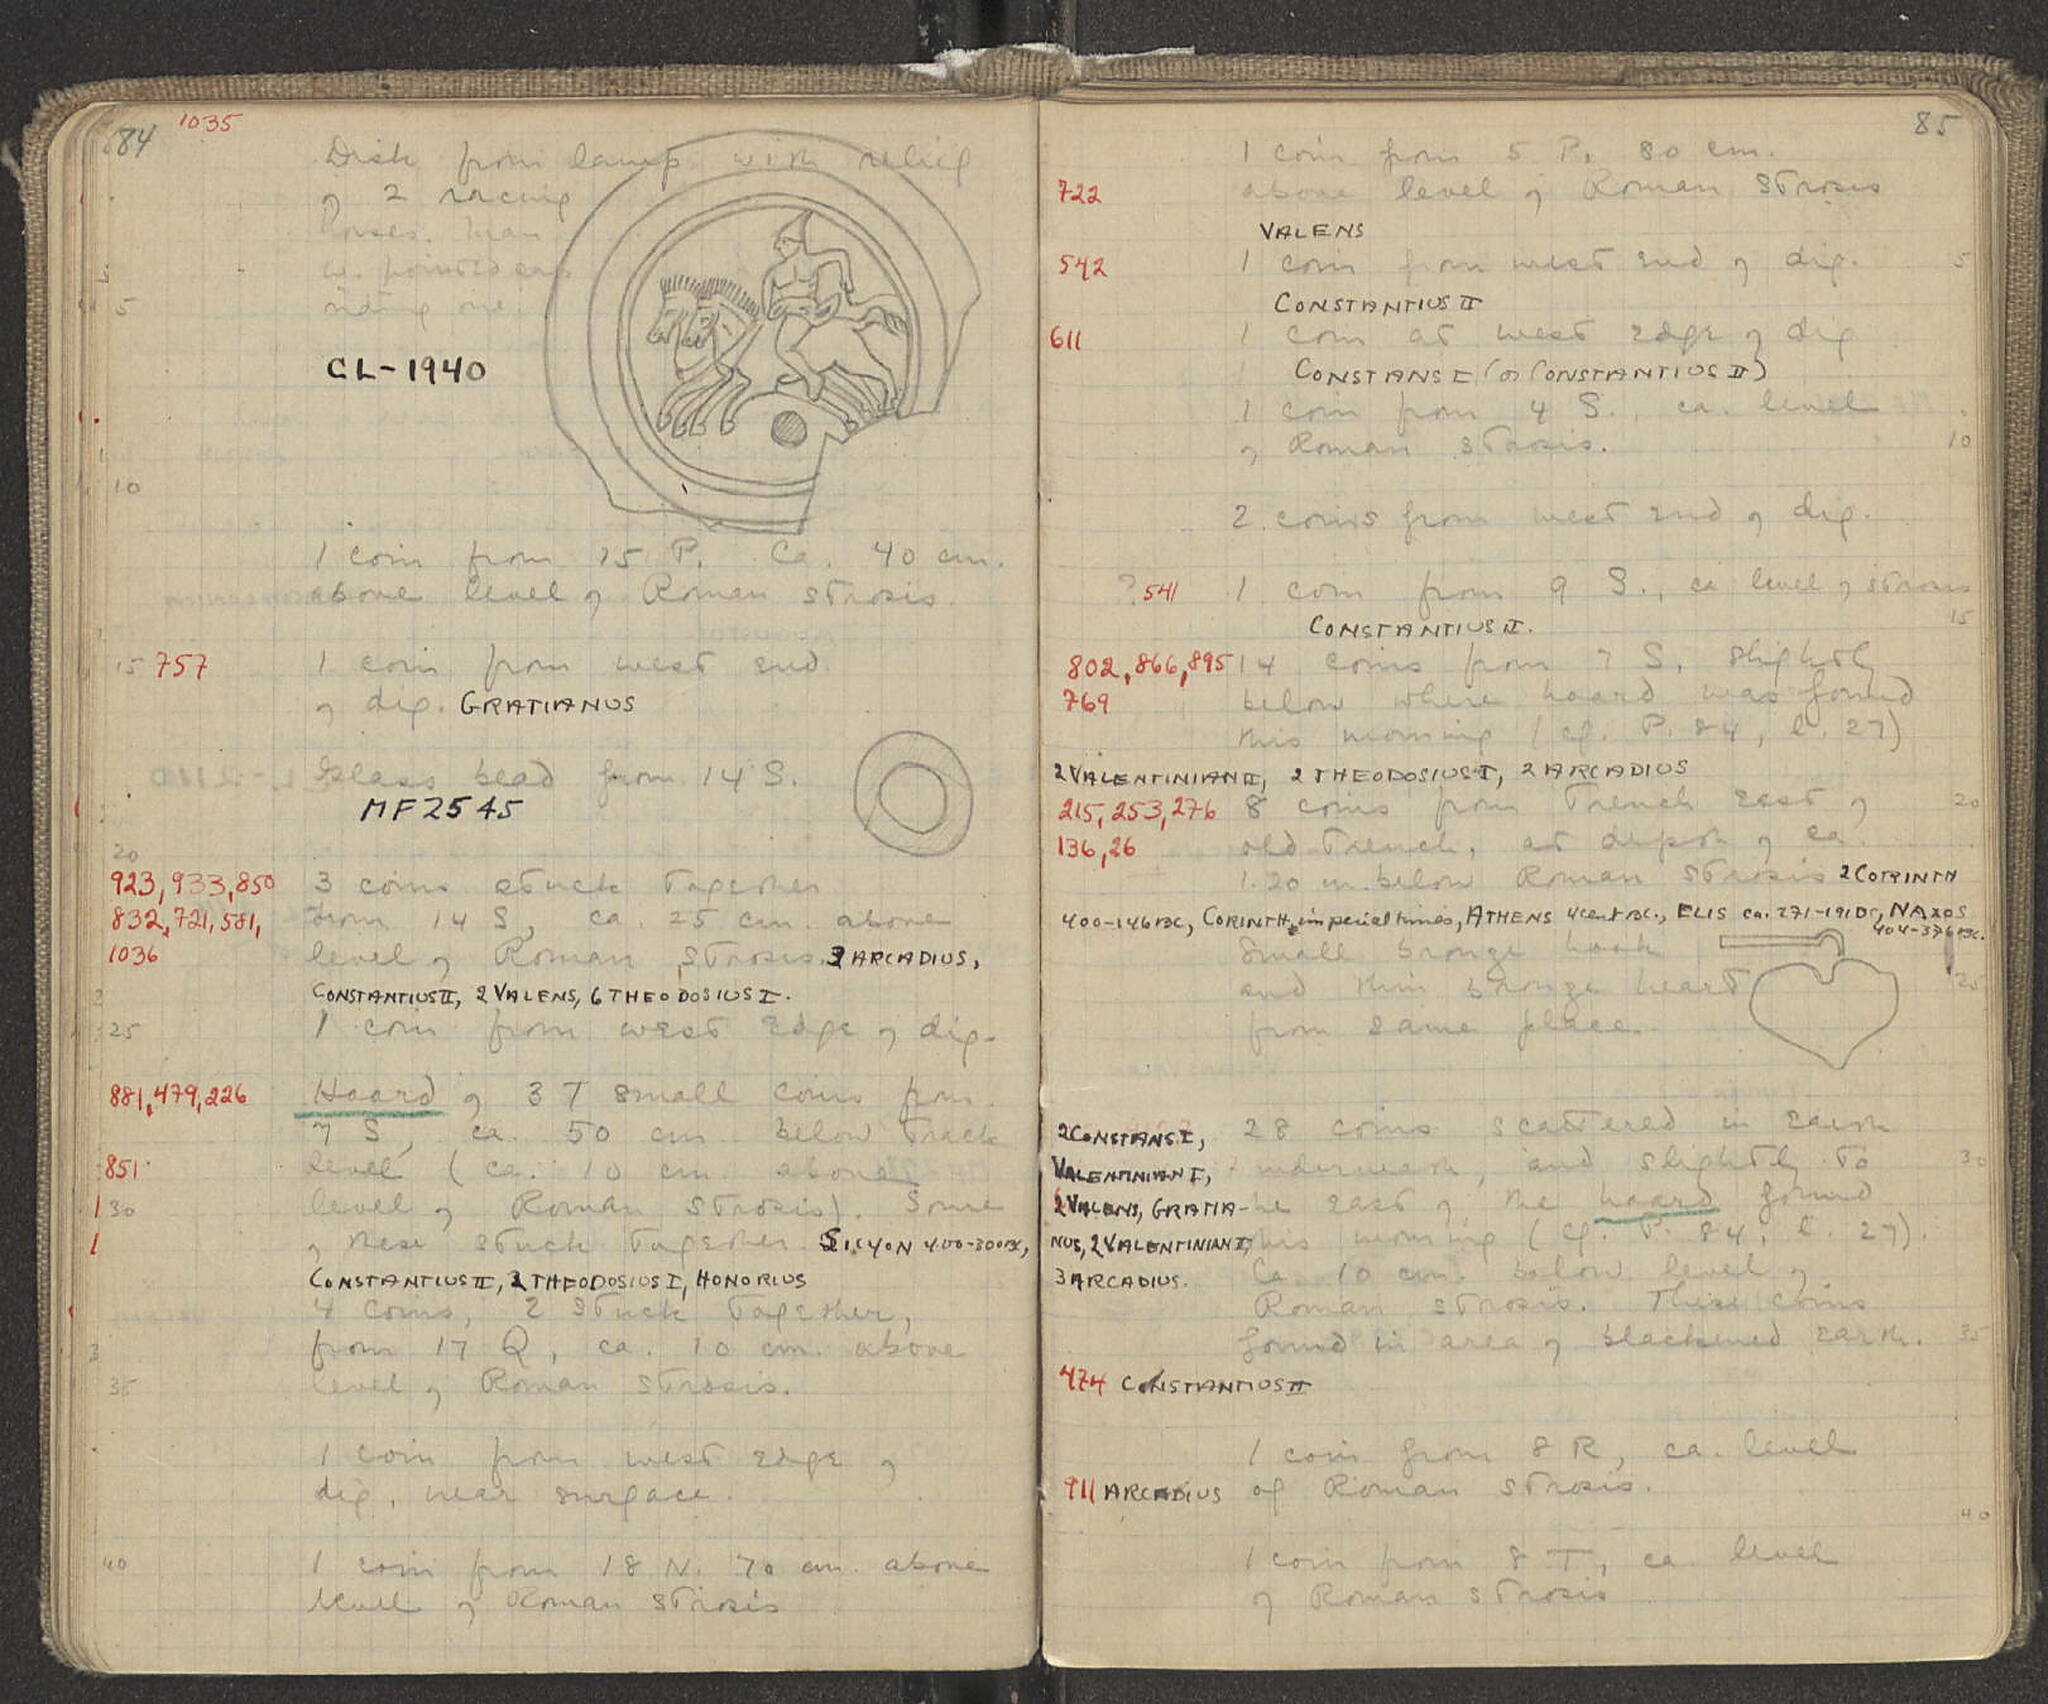 84 1035
Disk from lamp with relief
of 2 racing
horses. Man
w. pointed cap
5 riding one.
CL-1940
10
1 coin from 15 P. Ca. 40 cm.
above level of Roman strosis.
15 757 1 coin from west end
of dig. GRATIANUS
Glass bead from 14 S.
MF 2545
20
923, 933, 850 3 coins stuck together
832, 721, 581, from 14 S, ca. 25 cm. above
1036 level of Roman strosis. 3 ARCADIUS,
CONSTANTIUS II, 2 VALENS, 6 THEODOSIUS I.
25 1 coin from west edge of dig.
881, 479, 226 Hoard of 37 small coins from
7 S, ca. 50 cm. below track
851 level (ca. 10 cm. above
30 level of Roman strosis). Some
of these stuck together. SICYON 400-300 BC,
CONSTANTIUS II, 2 THEODOSIUS I, HONORIUS
4 coins, 2 stuck together,
from 17 Q, ca. 10 cm. above
35 level of Roman strosis.
1 coin from west edge of
dig, near surface.
40 1 coin from 18 N. 70 cm. above
level of Roman strosis
85
1 coin from 5 P, 80 cm.
722 above level of Roman strosis
VALENS
542 1 coin from west end of dig. 5
CONSTANTIUS II
611 1 coin at west edge of dig
CONSTANS I (or CONSTANTIUS II)
1 coin from 4 S., ca. level
of Roman strosis. 10
2 coins from west end of dig.
?541 1 coin from 9 S., ca level of strosis
15
CONSTANTIUS II.
802, 866, 895 14 coins from 7 S, slightly
769 below where hoard was found
this morning (cf. P. 84, l. 27)
2 VALENTINIAN II, 2 THEODOSIUS I, 2 ARCADIUS
215, 253, 276 8 coins from trench east of 20
136, 26 old trench, at depth of ca.
1.20 m. below Roman strosis 2 CORINTH
400-146 BC, CORINTH imperial times, ATHENS 4 cent BC., ELIS ca. 271-191 BC, NAXOS
404-376 BC.
Small bronze hook
and thin bronze heart 25
from same place.
2 CONSTANS I, 28 coins scattered in earth
VALENTINIAN I, underneath, and slightly to 30
2 VALENS, GRATIA- the east of, the hoard found
NUS, 2 VALENTINIAN II, this morning (cf. P. 84, l. 27).
3 ARCADIUS. Ca. 10 cm. below level of
Roman strosis. These coins
found in area of blackened earth. 35
474 CONSTANTIUS II
1 coin from 8 R, ca. level
911 ARCADIUS of Roman strosis.
40
1 coin from 8 T, ca. level
of Roman strosis